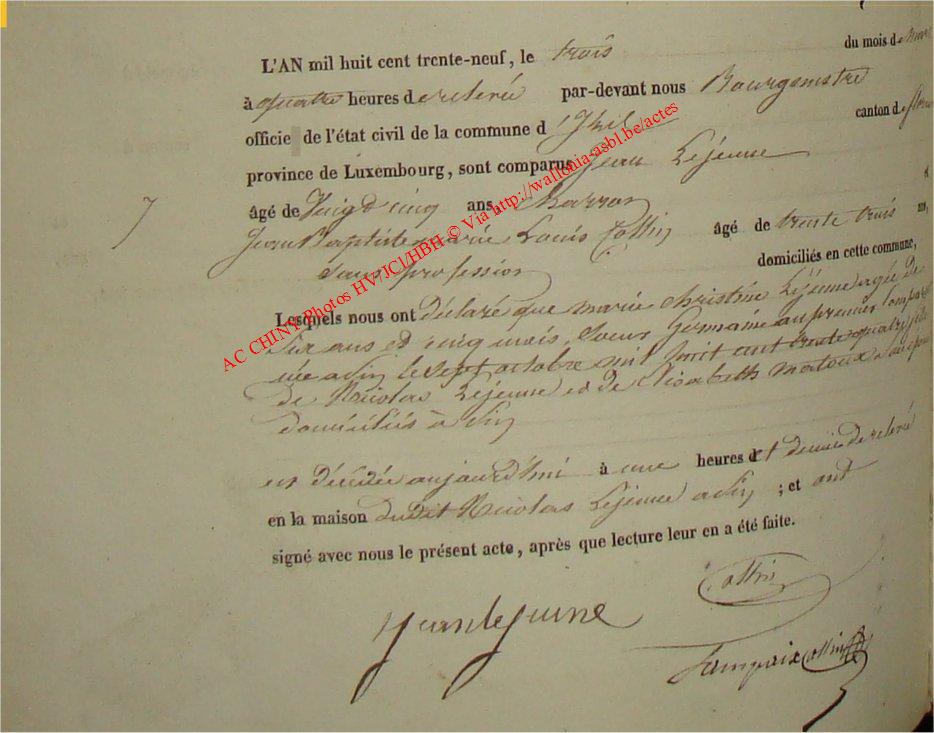 L'AN mil huit cent trente-neuf, le trois du mois de mars
à quatre heures de relevée par-devant nous Bourgmestre
officie de l'état civil de la commune d' Izel canton de
province de Luxembourg, sont comparus Jean Léjeune
âgé de Vingt cinq ans, et
Jean Baptiste marie Louis Collin âgé de trente trois ans,
Sans profession domiciliés en cette commune,
Lesquels nous ont déclaré que marie christine Léjeune agée de
ans et cinq mois, Soeur Germaine au premier comparant
née a le sept octobre mil huit cent trente quatre, fille
de Nicolas Léjeune et de Elisabeth
domiciliés à
est décédée aujourd'hui à une heures et demie de relevée
en la maison dudit Nicolas Léjeune a ; et ont
signé avec nous le présent acte, après que lecture leur en a été faite.
7
Collin
Jean le Jeune
Collin
AC CHINY Photos HV/JCl/HBH © Via http://wallonia-asbl.be/actes